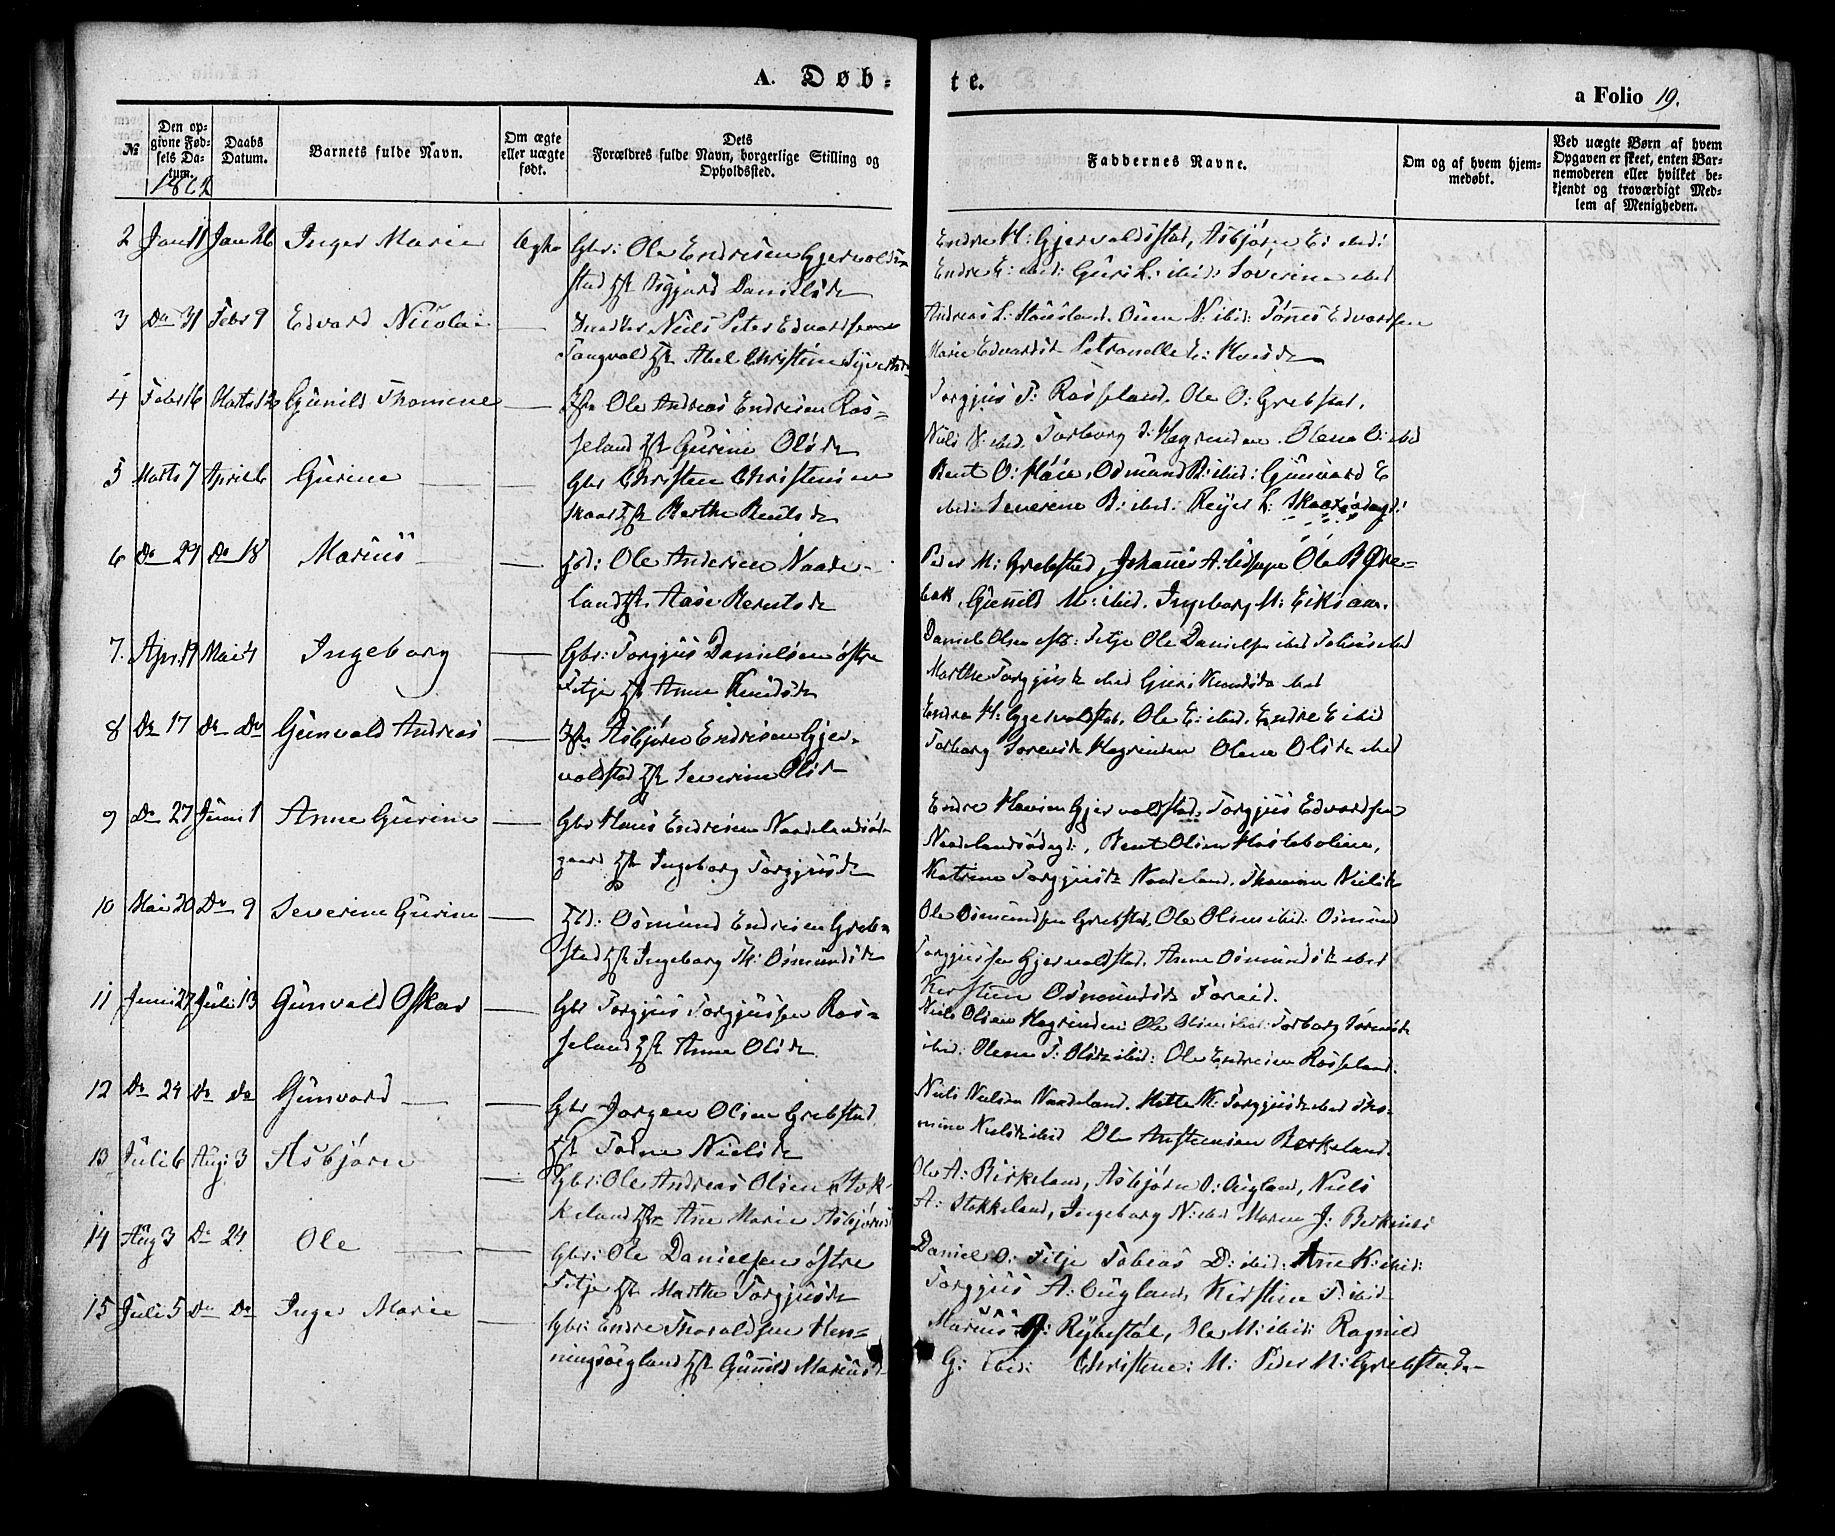 A. Døb-
te.
a Folio 19.
№
Den op-
givne Fød-
sels Da-
tum.
1862
Daabs
Datum.
Barnets fulde Navn.
Om ægte
eller uægte
født.
Dets
Forældres fulde Navn, borgerlige Stilling og
Opholdssted.
Faddernes Navne.
Om og af hvem hjem-
medøbt.
Ved uægte Børn af hvem
Opgaven er skeet, enten Bar-
nemoderen eller hvilket be-
kjendt og troværdigt Med-
lem af Menigheden.
2 Jan 11 Jan 26 Inger Marie Ægte Gbr: Ole Endresen Gjervolds-
stad Asgjærd Danielsd
Endre H: Gjervoldstad, Asbjørn E: ibid:
Endre E: ibid: Guri L: ibid: Soverine ibid
3 Do 31 Febr 9 Edvard Nicolai — Niels Peter Edvardsen
Tangvald Abel Christine Syvertsd
Andreas L: Haüsland. N: ibid: Tønes Edvardsen
Marie Edvardsd Petronelle E:
4 Febr 16 Marts 12 Gunild Thomine — Ole Andreas Endresen Ros-
seland Gurine Olsd
Torgjus T: Rosseland, Ole O: Grebstad,
Niels N: ibid. Torborg S: Hægrenden. Olene O: ibid
5 Marts 7 April 6 Gurine — — Gbr Christen Christensen
Skaar Berthe Bentsd
Bent O: Osmund B: ibid: Gunvard E
ibid: Severine B: ibid: Reyer L: Skaarsødegd:
6 Do 29 Do 18 Marius — — Ole Andersen Naade-
land Aase Berntsd
Peder M: Grebstad, Johannes A: Ole B Øre-
bek, Gunild M: ibid. Ingeborg M: Eiksaae.
7. Apr. 19 Mai 4 Ingeborg — Gbr: Torgjus Danielsen østre
Fitje Anne Knudsd
Daniel Olsen Fitje Ole Danielsen ibid Tobias ibid
Marthe Torgjusd ibid Guri Knudsd ibid
8 Do 17 Do Do Gunvald Andreas — Asbjørn Endresen Gjer-
voldstad Severine Olsd
Endre H: Gjervoldstad, Ole E: ibid. Endre E ibid
Torborg Sorensd Hægrenden Olene Olsd ibid
9 Do 27 Juni 1 Anne Gurine — Gbr Hans Endresen Naadelandsød-
gaard Ingeborg Torgjusd
Endre Hansen Gjervoldstad, Torgjus Edvardsen
Naadelandsødegd:, Bent Olsen
Katrine Torgjusd Naadeland. Thomine Nielsd
10 Mai 20 Do 9 Severine Gurine — Osmund Endresen Greb-
stad Ingeborg Th: Osmundsd
Ole Osmundsen Grebstad, Ole Olsen ibid: Osmund
Torgjussen Gjervoldstad, Anne Osmundsd ibid
Kirstine Osmundsd
11 Juni 27 Juli 13 Gunvald Oskar — Gbr Torgjus Torgjussen Ros-
seland Anne Olsd
Niels Olsen Hægrenden Ole Olsen ibid: Torborg Sørensd
ibid: Olene T: Olsd ibid: Ole Endresen Rosseland.
12 Do 24 Do do Gunvord — — Gbr Jørgen Olsen Grebstad
Todne Nielsd
Niels Nielsen Naadeland. Mette K: Torgjusd ibid Tho-
mine Nielsd ibid Ole Anstensen Berkeland.
13 Juli 6 Aug: 3 Asbjørn — Gbr: Ole Andreas Olsen Stok-
keland Ane Marie Asbjørnsd
Ole A: Birkeland, Asbjørn O: Øugland, Niels
A: Stokkeland, Ingeborg N: ibid Maren J:
14 Aug 3 Do 24 Ole — — Gbr: Ole Danielsen østre
Fitje Marthe Torgjusd
Daniel O: Fitje Tobias D: ibid: Ane K: ibid:
Torgjus A: Øugland, Kirstine T: ibid
15 Juli 5 Do Do Inger Marie — Gbr: Endre Thoraldsen Hen-
ningsøegland Gunild Mariusd
Marius J: Rybestøl, Ole M: ibid: Ragnild
G: ibid: Christene: M: Peder M: Grebstad